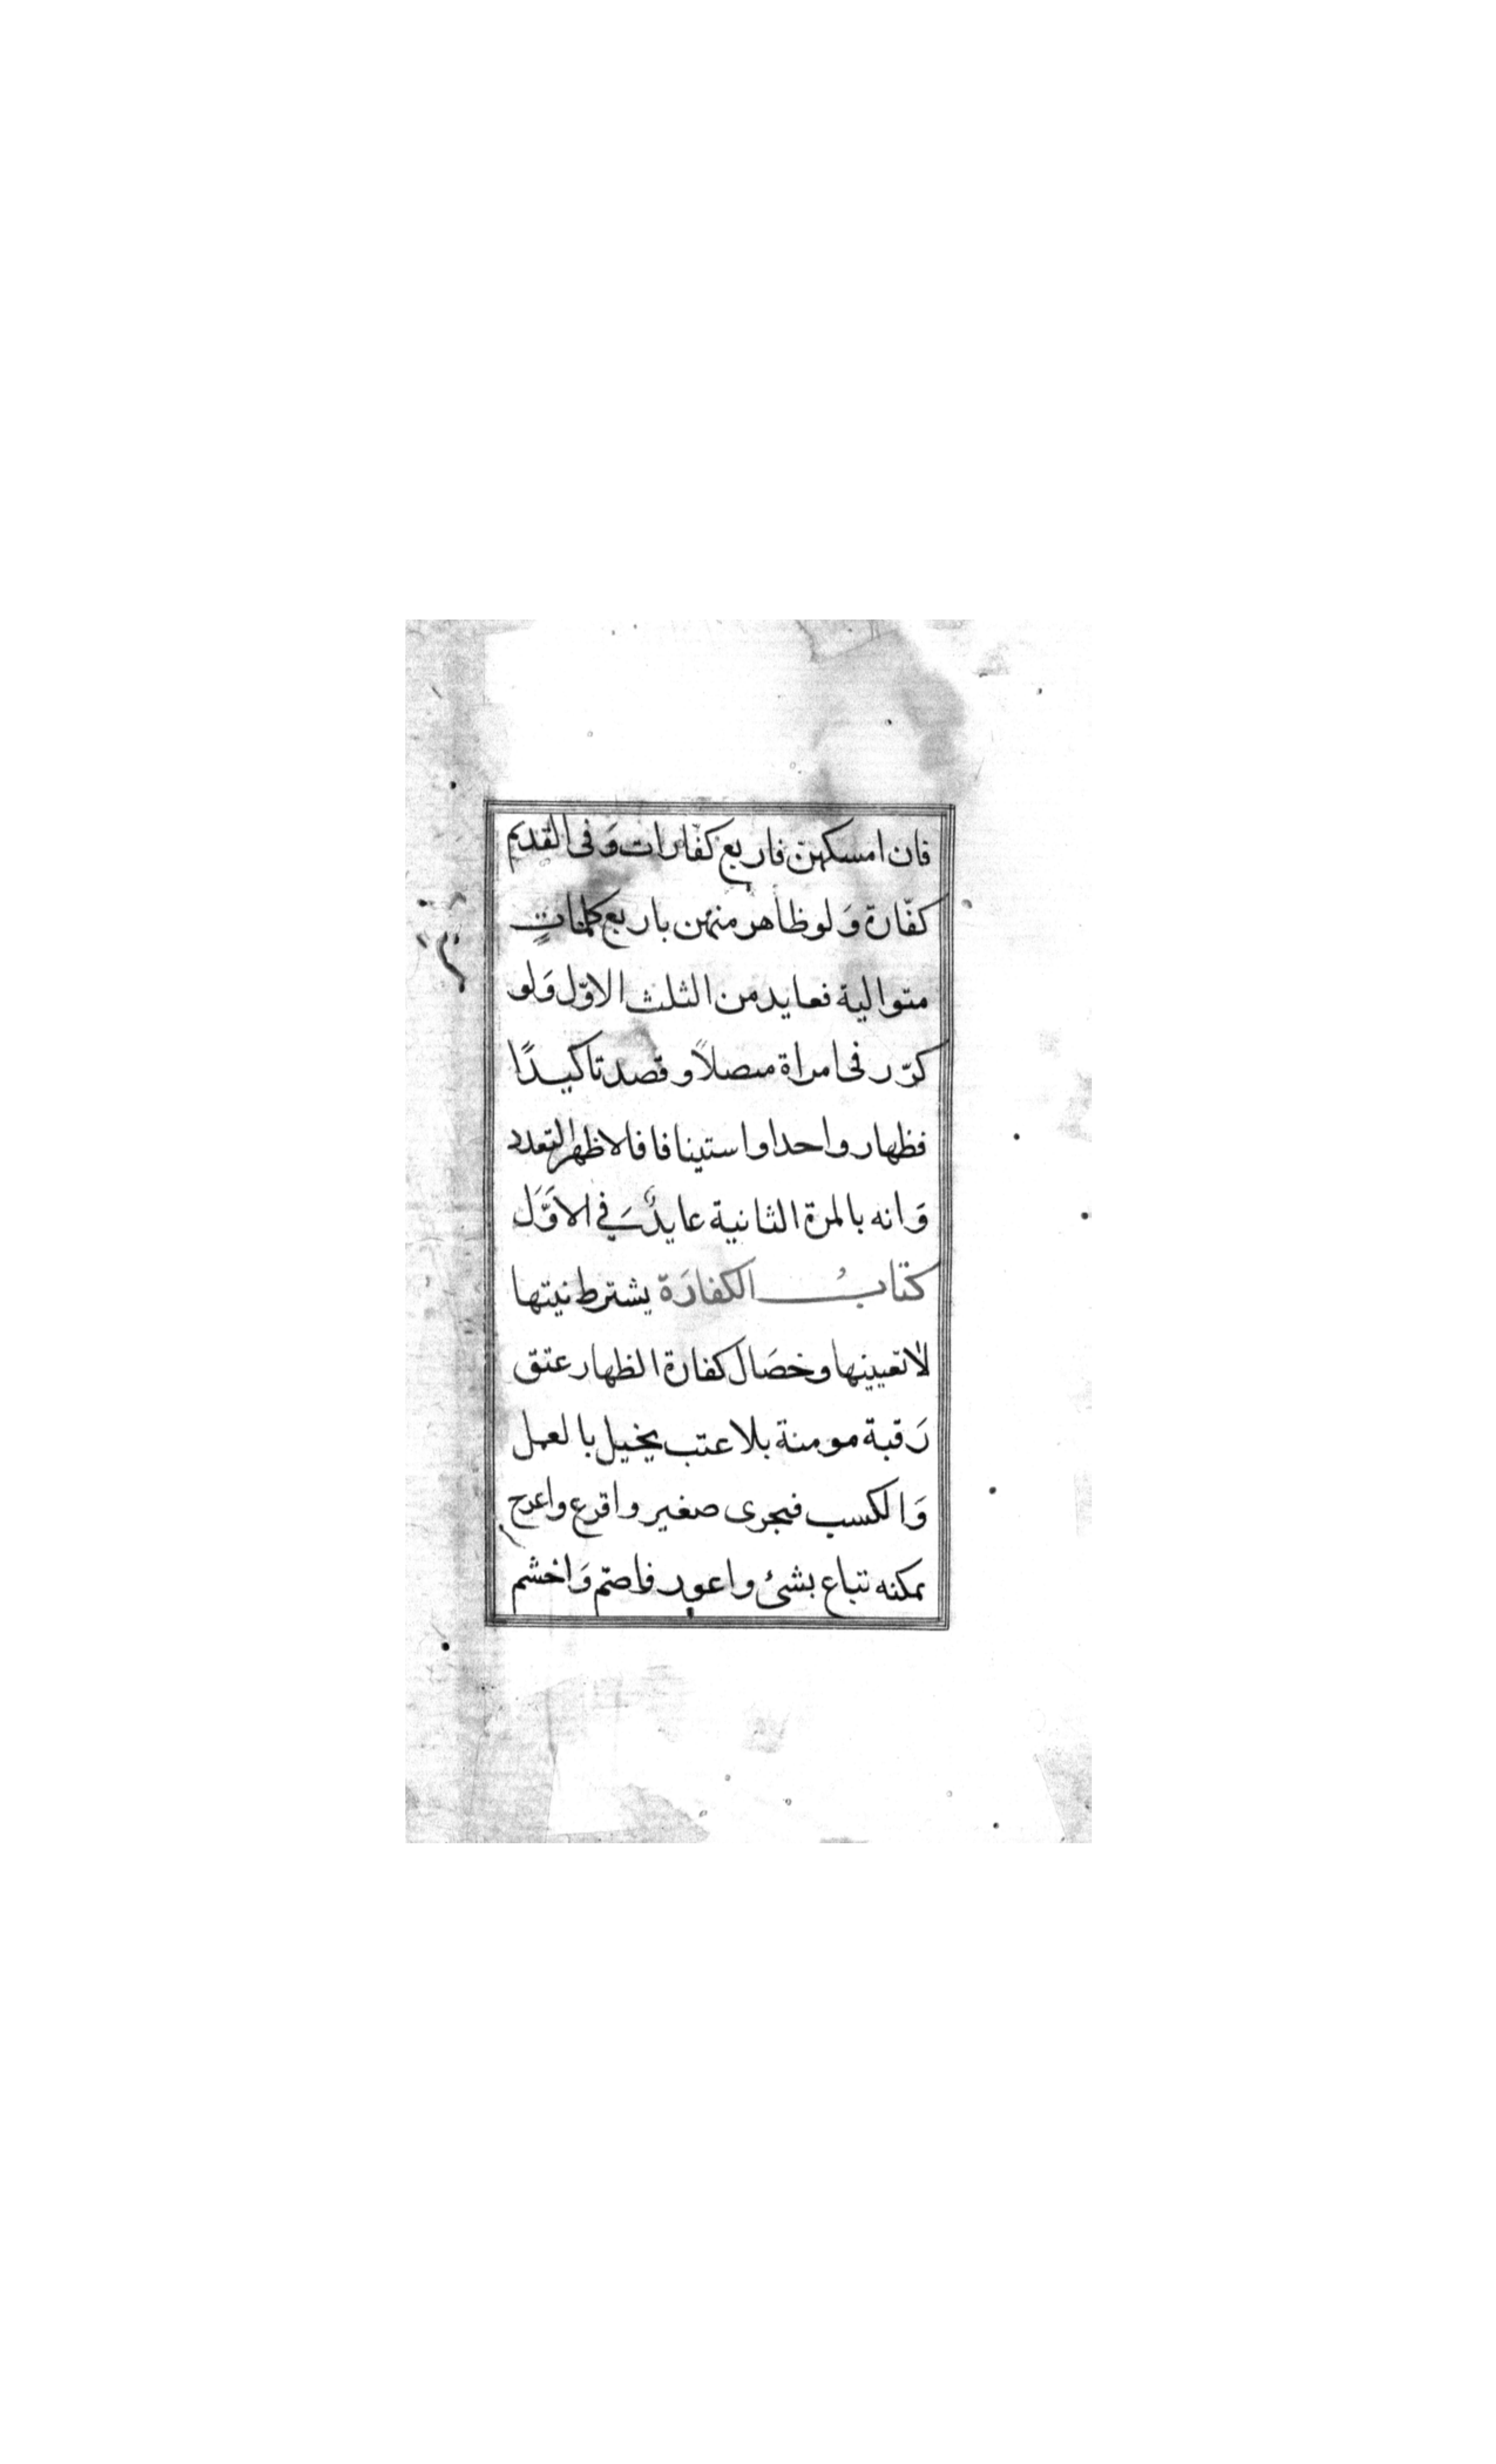 فان امسكهن فاربع كفّارات وَفى القديم
كفّارة وَلو ظاهر منهن باربع كلمات
متوالية فعايد من الثلث الاوّل وَلو
كرّر فى امراة متصلاً و قصد تاكيدًا
فظهار واحد او استينافا فالاظهر التعدد
وَانه بالمرة الثانية عايد فى الاوَّل
كتابُ الكفارَة يشترط نيتها
لا تعيينها وخصَال كفارة الظهار عتق
رَقبة مومنة بلا عتب يخيل بالعمل
وَالكسب فيجرى صغير واقرع واعرج
يمكنه تباع بشئ واعور فاصمّ وَاخشم